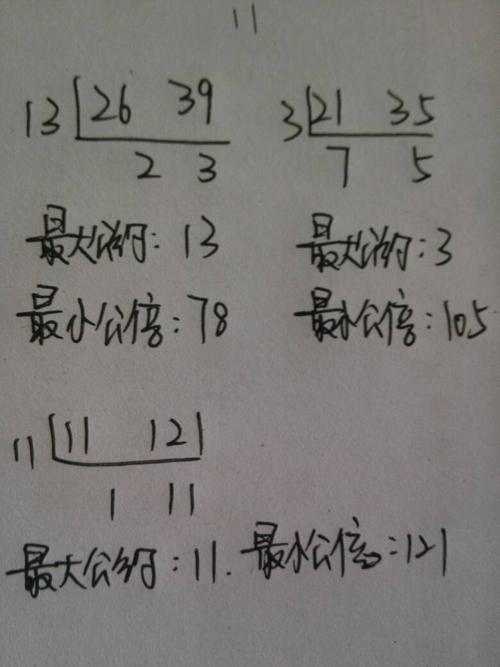 11
13 26 39
2 3
最大公约: 13
最小公倍: 78
3 21 35
7 5
最大公约: 3
最小公倍: 105
11 11 121
1 11
最大公约: 11. 最小公倍: 121